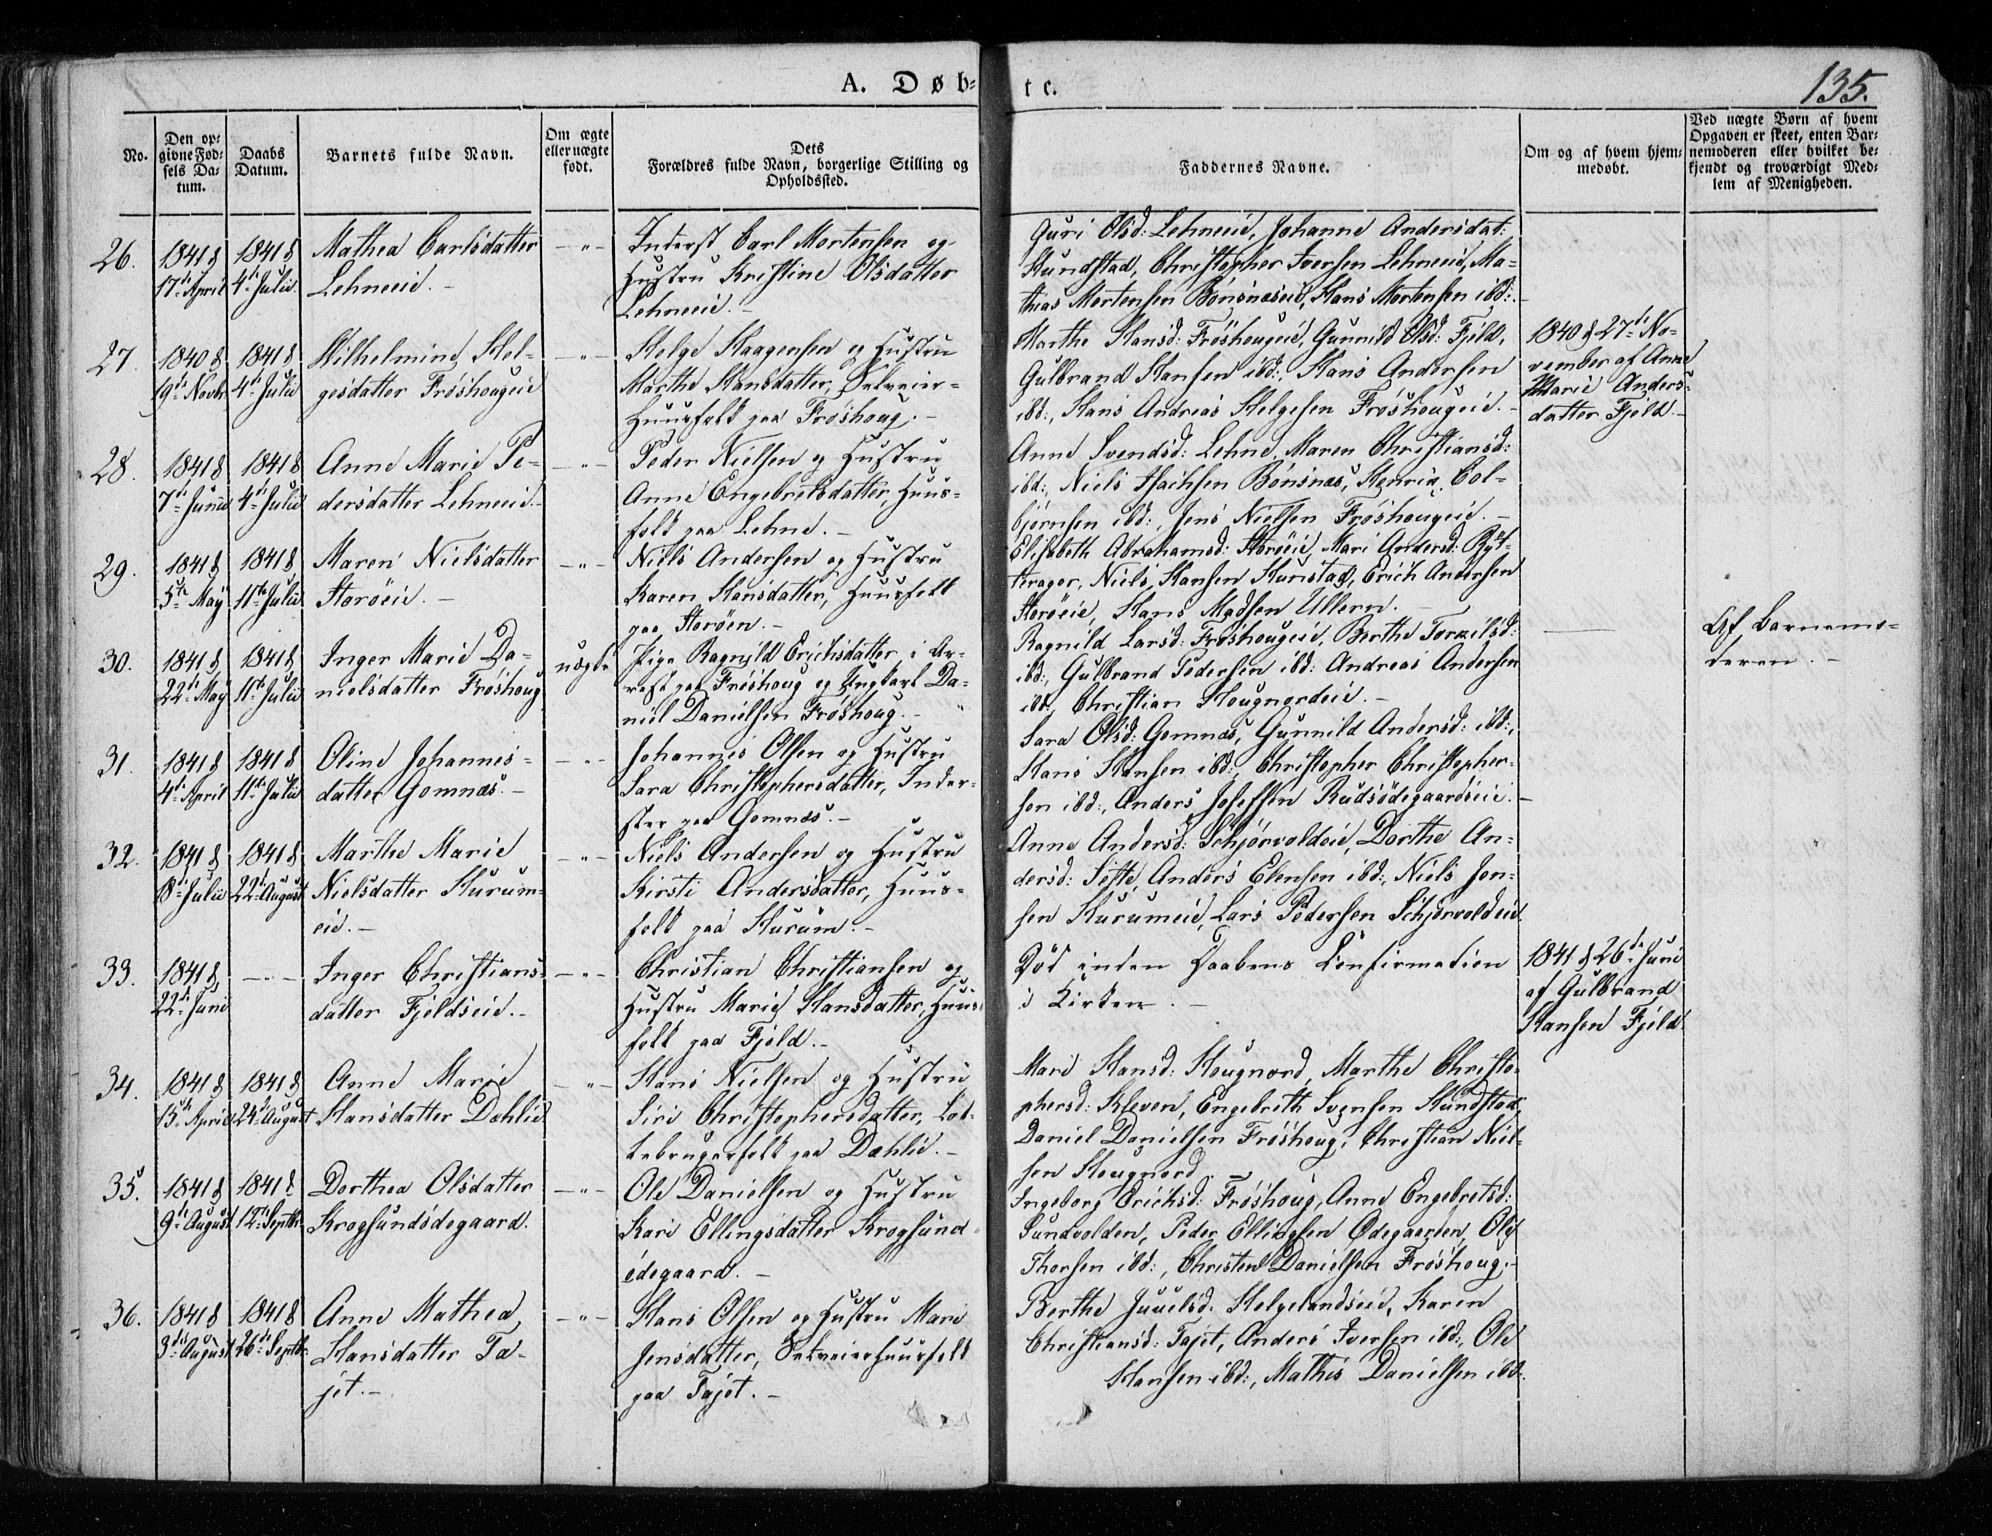 A. Døb-
te.
135.
No.
Den op-
givne Fød-
sels Da-
tum.
Daabs
Datum.
Barnets fulde Navn.
Om ægte
eller uægte
født.
Dets
Forældres fulde Navn, borgerlige Stilling og
Opholdssted.
Faddernes Navne.
Om og af hvem hjem-
medøbt.
Ved uægte Børn af hvem
Opgaven er skeet, enten Bar-
nemoderen eller hvilket be-
kjendt og troværdigt Med-
lem af Menigheden.
26.
1841 d
17de April
1841 d
4de Julii
Mathea Carlsdatter
Lehneeie.-
-"-
Inderst Carl Mortensen og
Hustru Kristine Olsdatter
Lehneeie.-
Guri Olsd: Lehneeie, Johanne Andersdat:
Hundstad, Christopher Iversen Lehneeie, Ma-
thias Mortensen Bønsnæseie, Hans Mortensen ibd:.
27.
1840 d
19de Novbr
1841 d
4de Julii
Wilhelmine Hel-
gesdatter Frøshougeie
-"-
Helge Haagensen og Hustru
Marthe Hansdatter, Selveier-
Huusfolk paa Frøshoug.-
Marthe Hansd: Frøshougeie, Gunnild Olsd: Fjeld,
Gulbrand Hansen ibd:, Hans Andersen
ibd:, Hans Andreas Helgesen Frøshougeie.-
1840 d 27de No-
vember af Anne
Marie Anders-
datter Fjeld.-
28.
1841 d
7de Junii
1841 d
4de Julii
Anne Marie Pe-
dersdatter Lehneeie.-
-"-
Peder Nielsen og Hustru
Anne Engebretsdatter, Huus-
folk paa Lehne.-
Anne Svendsd: Lehne, Maren Christiansd:
ibd:, Niels Isachsen Bønsnæs, Henrich Col-
bjørnsen ibd:, Jens Nielsen Frøshougeie.-
29.
1841 d
5te May
1841 d
11te Julii
Maren Nielsdatter
Storøeie.-
-"-
Niels Andersen og Hustru
Karen Hansdatter, Huusfolk
paa Storøen.-
Elisabeth Abrahamsd: Storøeie, Mari Andersd: Ryt-
terager, Niels Hansen Hunstad, Erich Andersen
Storøeie, Hans Madsen Ullern.-
30.
1841 d
22de May
1841 d
11te Julii
Inger Marie Da-
nielsdatter Frøshoug
uægte
Pige Ragnild Erichsdatter i Ar-
rest paa Frøshoug og Ungkarl Da-
niel Danielsen Frøshoug.-
Ragnild Larsd: Frøshougeie, Berthe Torkilsd:
ibd:, Gulbrand Pedersen ibd: Andreas Andersen
ibd:, Christian Hougnordeie.-
Af Barnemo-
deren.-
31.
1841 d
4de April
1841 d
11te Julii
Oline Johannes-
datter Gomnæs.-
-"-
Johannes Olsen og Hustru
Sara Christophersdatter, Inder-
ster paa Gomnæs.-
Sara Olsd: Gomnæs, Gunnild Andersd: ibd:,
Hans Hansen ibd:, Christopher Christopher-
sen ibd:, Anders Josefsen Rudsødegaardseie.-
32.
1841 d
18de Julii
1841 d
22de August
Marthe Marie
Nielsdatter Hurum-
eie.-
-"-
Niels Andersen og Hustru
Kirsti Andersdatter, Huus-
folk paa Hurum.-
Anne Andersd: Schjørvoldeie, Dorthe An-
dersd: Sette, Anders Elensen ibd:, Niels Jen-
sen Hurumeie, Lars Pedersen Schjørvoldeie
33.
1841 d
22de Juni
-"-
Inger Christians-
datter Fjeldseie.-
-"-
Christian Christiansen og
Hustru Marie Hansdatter, Huus-
folk paa Fjeld.-
Død inden Daabens Confirmation
i Kirken.-
1841 d 26de Juni
af Gulbrand
Hansen Fjeld.
34.
1841 d
15de April
1841 d
24de August
Anne Marie
Hansdatter Dæhlie
-"-
Hans Nielsen og Hustru
Siri Christophersdatter, Lot-
tebrugerfolk paa Dæhlie.-
Mari Hansd: Hougnord, Marthe Christo-
phersd: Kleven, Engebreth Svensen Hundstad,
Daniel Danielsen Frøshoug, Christian Niel-
sen Hougnord.
35.
1841 d
9de August
1841 d
12te Septbr
Dorthea Olsdatter
Krogsundsdegaard.
-"-
Ole Danielsen og Hustru
Kari Ellingsdatter Krogsund
ødegaard.-
Ingeborg Erichsd: Frøshoug, Anne Engebretsd:
Sundvolden, Peder Ellingsen Ødegaarden, Ole
Thorsen ibd:, Christen Danielsen Frøshoug.-
36.
1841 d
3die August
1841 d
26de Septbr
Anne Mathea
Hansdatter Ta-
jet.-
-"-
Hans Olsen og Hustru Mari
Jensdatter, Selveierhuusfolk
paa Tajet.-
Berthe Juuelsd: Helgelandseie, Karen
Christiansd: Tajet, Anders Iversen ibd:, Ole
Hansen ibd:, Mathis Danielsen ibd:.